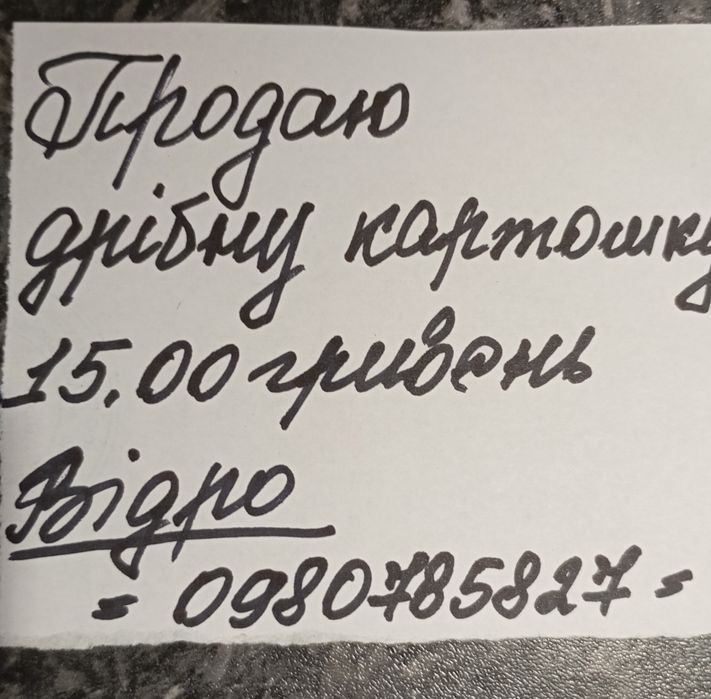 Продаю
дрібну картошку
15.00 гривень
Відро
= 0980785827 =